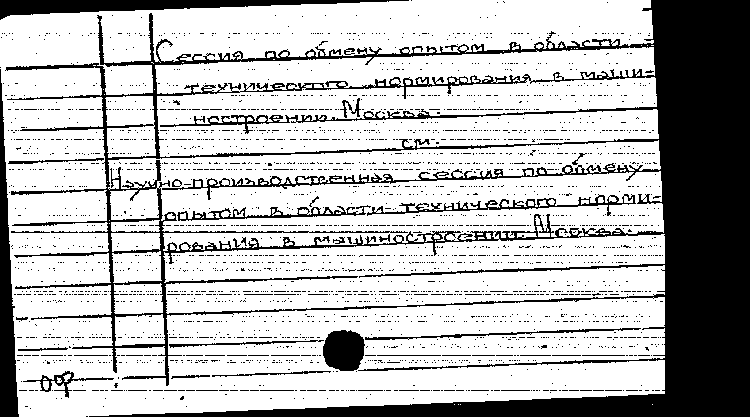 Сессия по обмену опытом в области
технического нормирования в маши=
ностроении. Москва.
см.
Научно-производственная сессия по обмену
опытом в области технического норми=
рования в машиностроении. Москва.